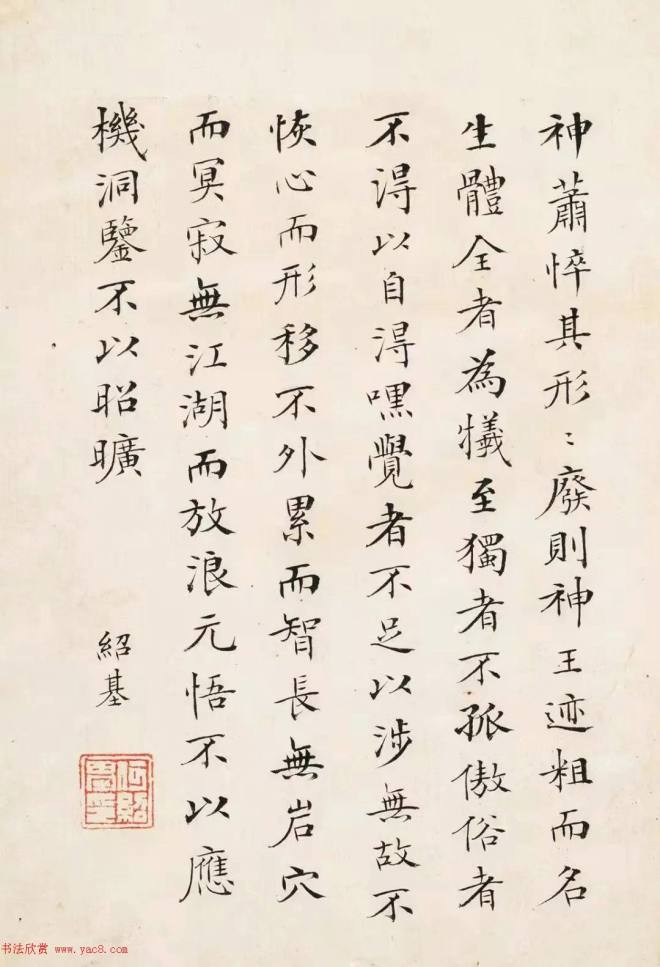 神蕭悴其形〻廢則神王迹粗而名
生體全者為犧至獨者不孤傲俗者
不得以自得嘿覺者不足以涉無故不
恢心而形移不外累而智長無岩穴
而冥寂無江湖而放浪元悟不以應
機洞鑒不以昭曠
紹基
何紹基印
书法欣赏 www.yac8.com